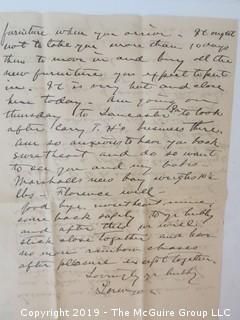 furniture when you arrive - It ought
not to take you more than 10 days
then to move in and buy all the
new furniture you expect to put
in. It is very hot and close
here today - Am going on
thursday to Lancaster to look
after Harry T. H's business there.
Am so anxious to have you back
sweetheart and do so want
to see you and my babies
Marshalls new boy weighs
lbs - Florence well -
Good bye, sweetheart, mine,
come back safely to yr hubby
and after this we will
stick close together and have
no more rainbow chases
after pleasure except together.
Lovingly yr hubby
Copyright 2019 - The McGuire Group LLC